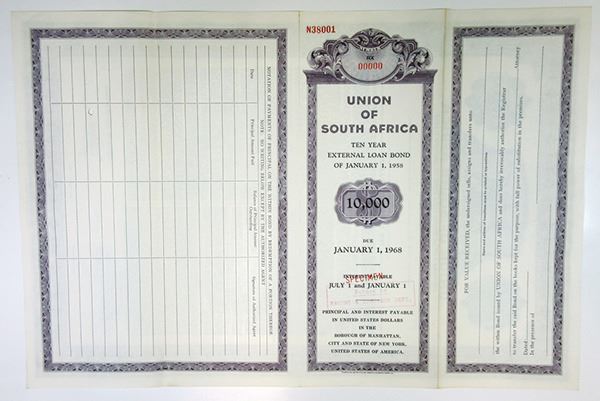 NOTATION OF PAYMENTS OF PRINCIPAL ON THE WITHIN BOND BY REDEMPTION OF A PORTION THEREOF
NOTE: NO WRITING BELOW EXCEPT BY THE AUTHORIZED AGENT
Date
Principal Amount Paid
Balance of Principal Amount
Outstanding
Signature of Authorized Agent
N38001
RX
00000
UNION
OF
SOUTH AFRICA
TEN YEAR
EXTERNAL LOAN BOND
OF JANUARY 1, 1958
10,000
DUE
JANUARY 1, 1968
INTEREST PAYABLE
SPECIMEN
JULY 1 and JANUARY 1
PRINCIPAL AND INTEREST PAYABLE
IN UNITED STATES DOLLARS
IN THE
BOROUGH OF MANHATTAN,
CITY AND STATE OF NEW YORK,
UNITED STATES OF AMERICA.
FOR VALUE RECEIVED, the undersigned sells, assigns and transfers unto
the within Bond issued by UNION OF SOUTH AFRICA and does hereby irrevocably authorize the Registrar
Attorney
to transfer the said Bond on the books kept for the purpose, with full power of substitution in the premises.
Dated:
In the presence of